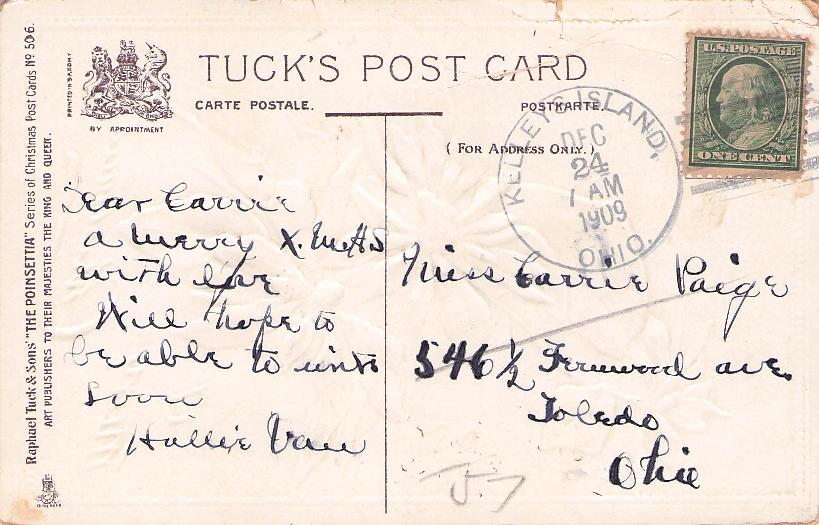 TUCK'S POST CARD
CARTE POSTALE. POSTKARTE.
(FOR ADDRESS ONLY.)
PRINTED IN SAXONY
BY APPOINTMENT
Raphael Tuck & Sons' "THE POINSETTIA" Series of Christmas Post Cards No 506.
ART PUBLISHERS TO THEIR MAJESTIES THE KING AND QUEEN.
U.S. POSTAGE
ONE CENT
KELLEYS ISLAND,
DEC
24
1 AM
1909
OHIO.
Dear Carrie
a merry X.MAS
with love
Will hope to
be able to
soon
Hallie Van
Miss Carrie Paige
546 1/2 Fernwood ave.
Toledo
Ohio